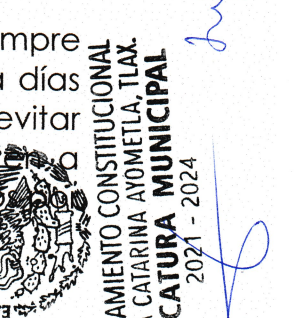 mpre
días
evitar
a
AMIENTO CONSTITUCIONAL
CATARINA AYOMETLA, TLAX.
CATURA MUNICIPAL
2021 - 2024